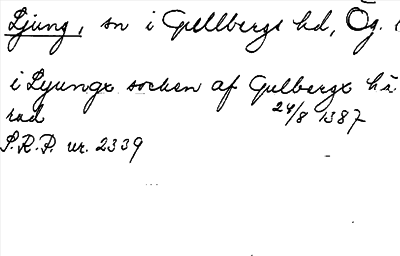 Ljung, sn i Gullbergs hd, Ög.
i Lyunge socken af Gulbergx hä
rad 24/8 1387
S.R.P. nr. 2339